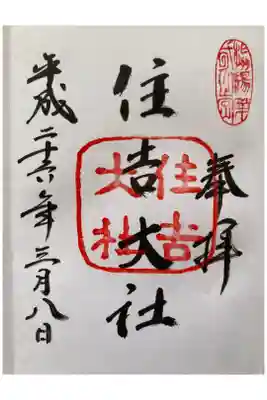 奉拝
住吉大社
住吉大社
平成二十六年三月八日